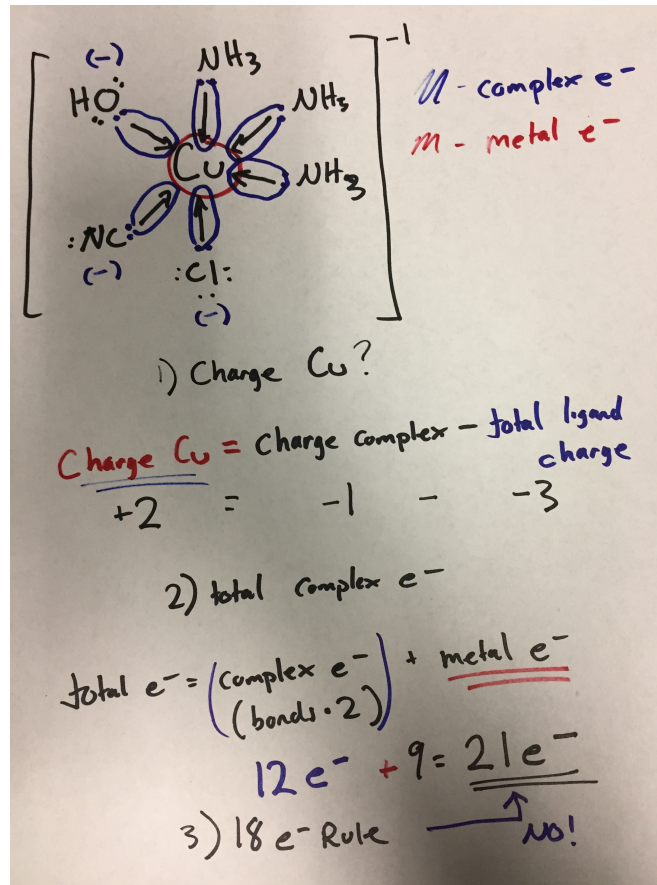 -1
(-)
NH3
HÖ:
NH3
Cu
NH3
:NC:
(-)
:Cl:
(-)
M - complex e-
m - metal e-
1) Charge Cu?
Charge Cu = Charge complex - total ligand charge
+2 = -1 - -3
2) total complex e-
total e- = (complex e- (bonds · 2)) + metal e-
12 e- + 9 = 21 e-
3) 18 e- Rule NO!